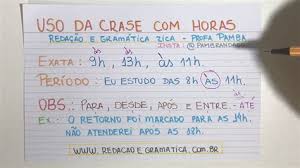 USO DA CRASE COM HORAS
REDAÇÃO E GRAMÁTICA ZICA - PROFA PAMBA
INSTA: @PAMBRANDAO
EXATA: às 9h, às 13h, às 11h.
PERÍODO: EU ESTUDO DAS 8h ÀS 11h.
OBS.: PARA, DESDE, APÓS E ENTRE. - ATÉ
EX.: O RETORNO FOI MARCADO PARA AS 14h.
NÃO ATENDEREI APÓS AS 18h.
WWW.REDACAOEGRAMATICA.COM.BR